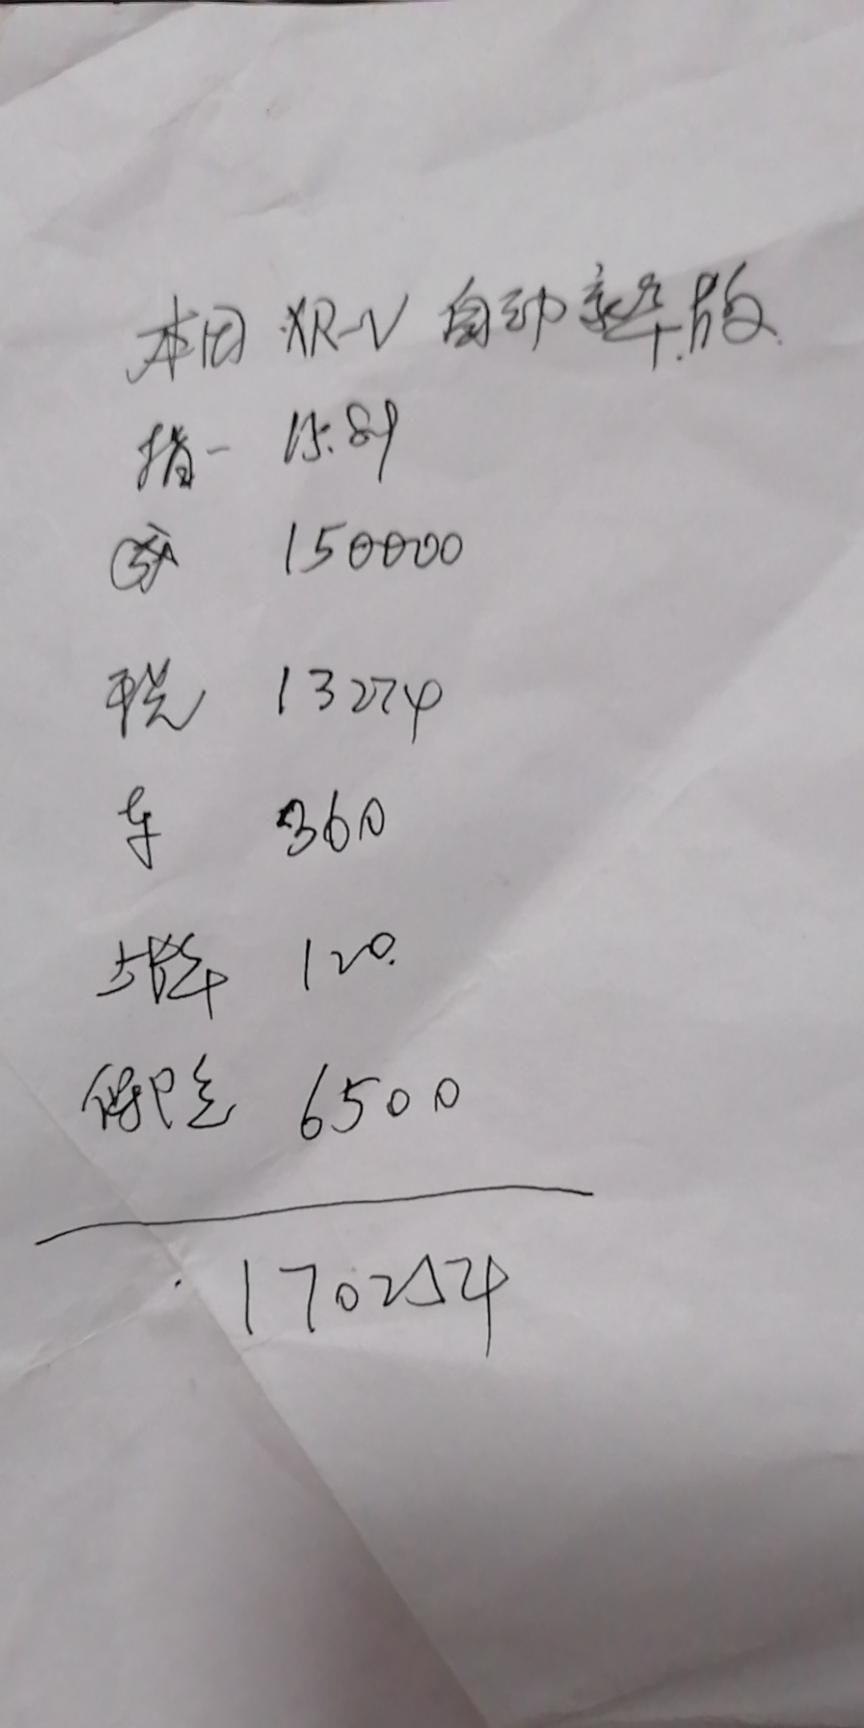 本田 XR-V 自动豪华版
指一 15.89
150000
税 13274
车 360
上牌 120.
保险 6500
170254